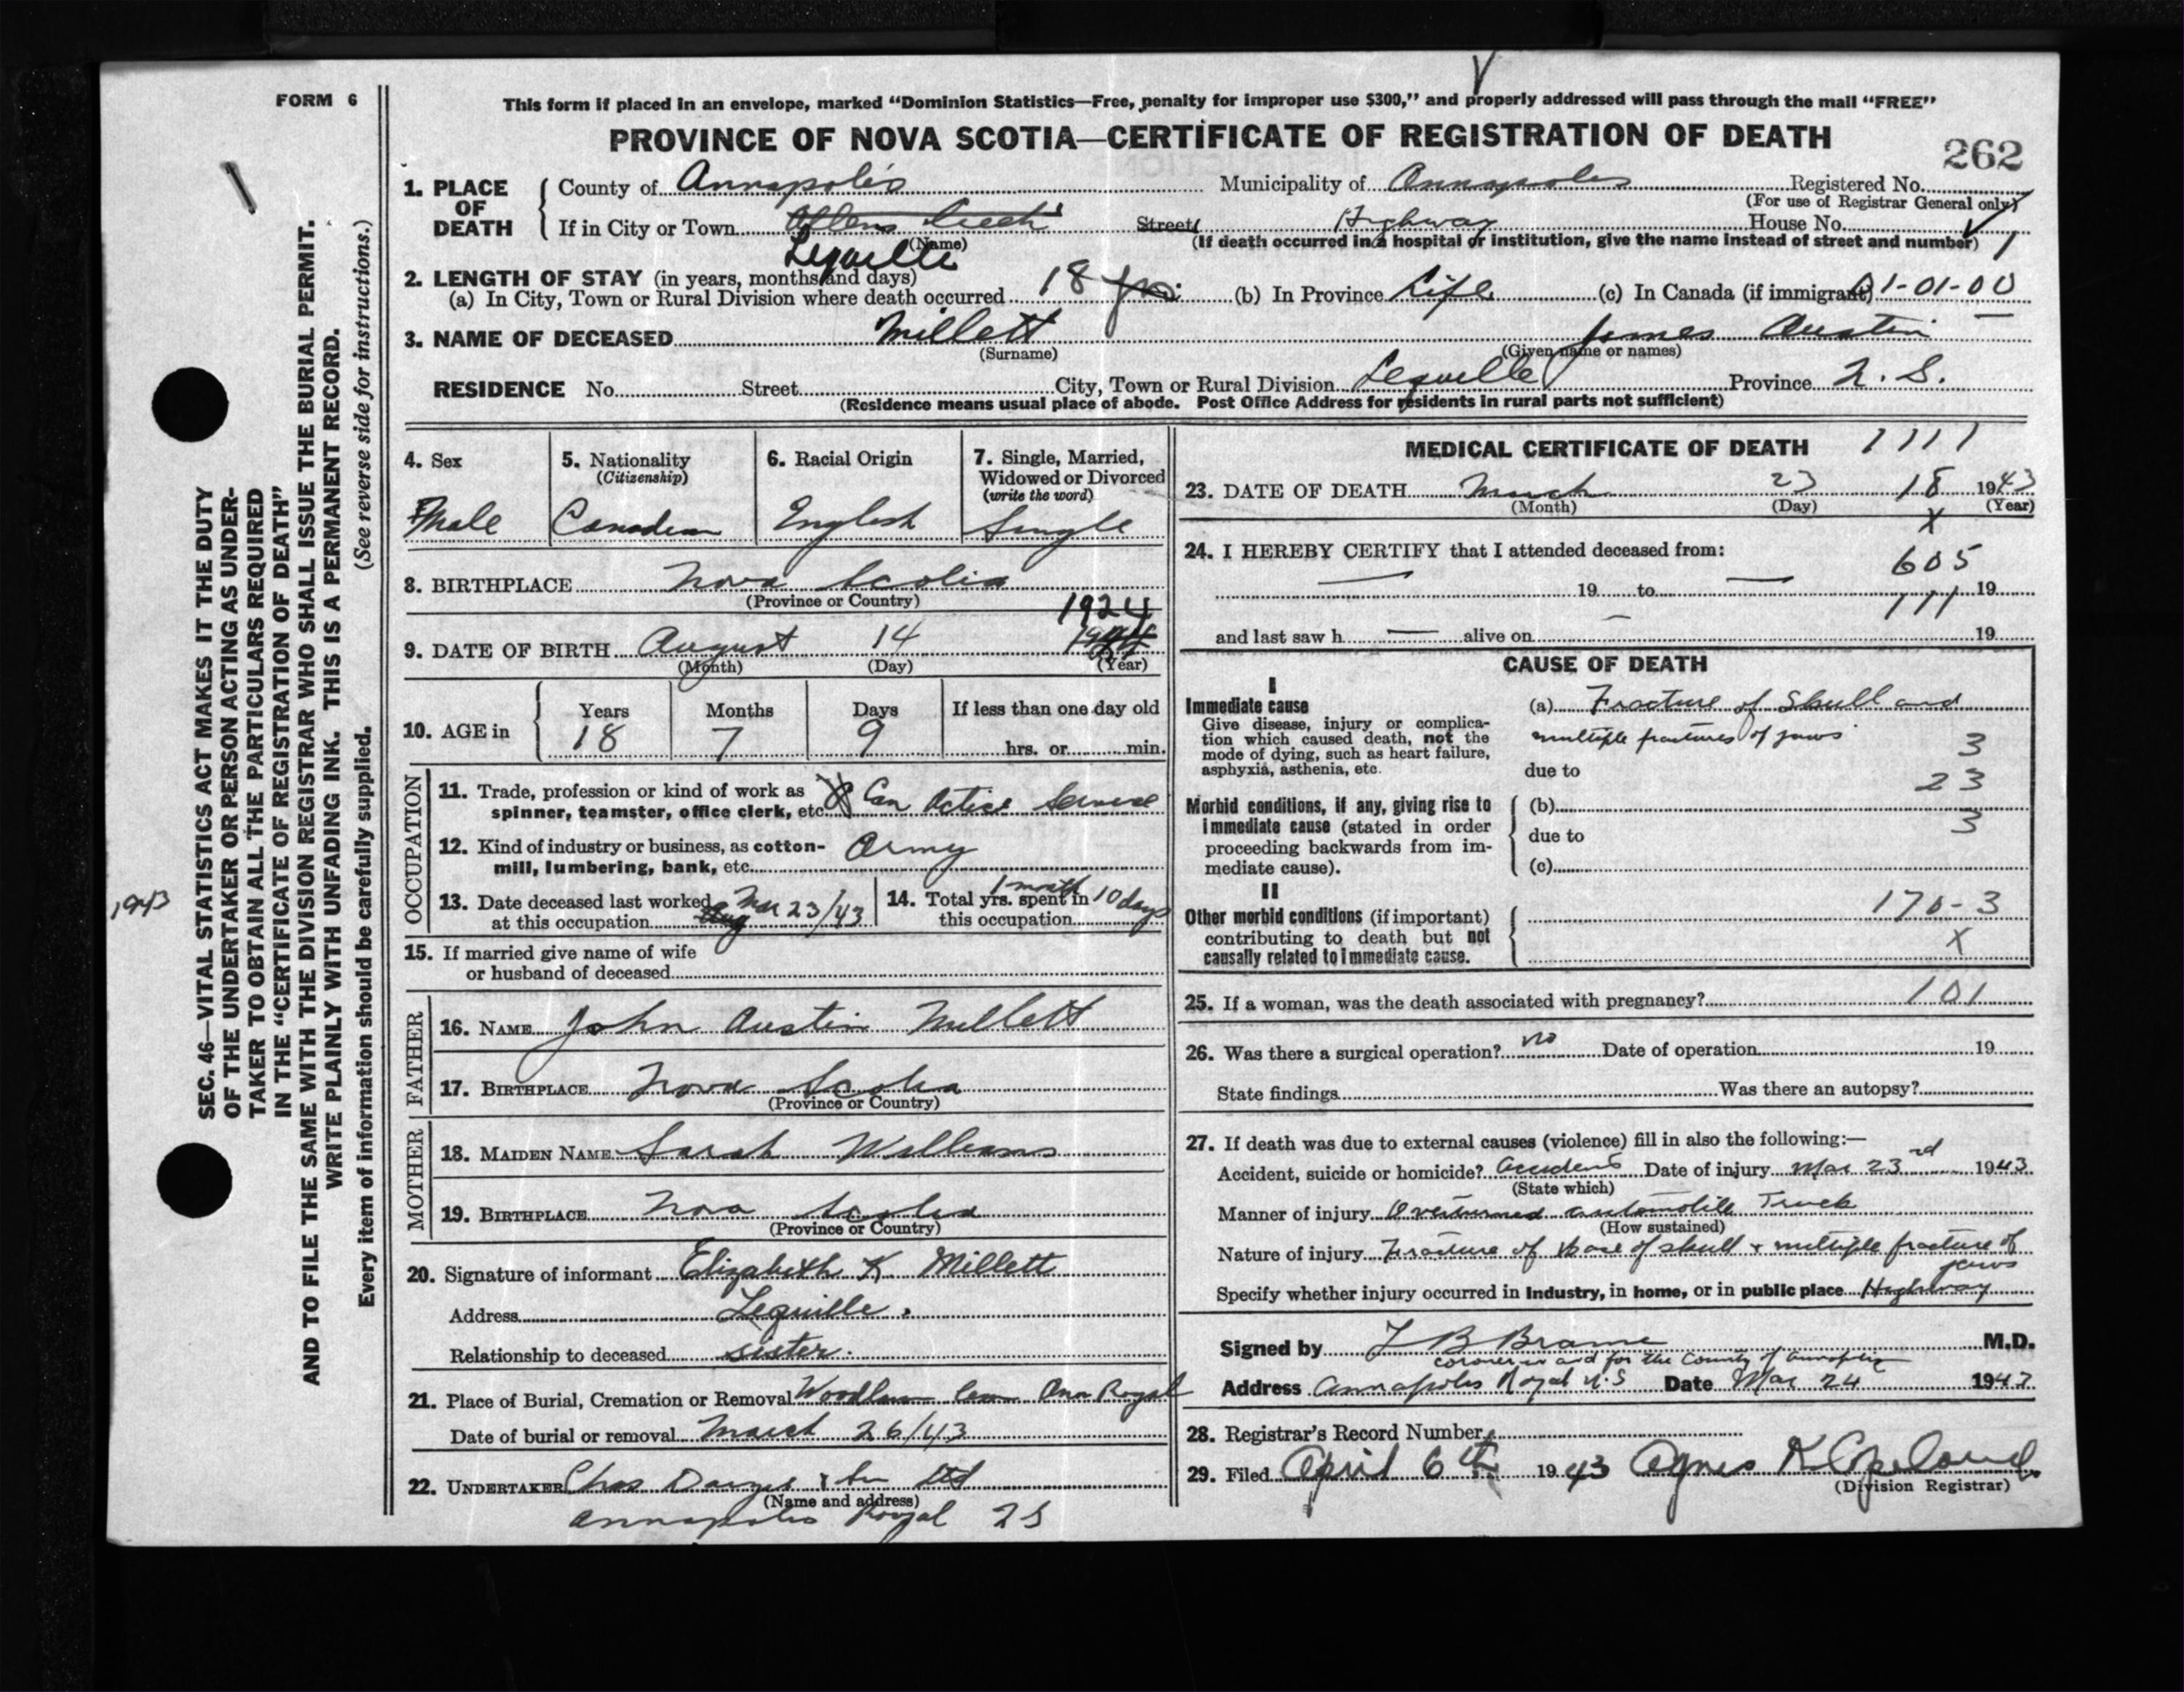 FORM 6
This form if placed in an envelope, marked "Dominion Statistics—Free, penalty for improper use $300," and properly addressed will pass through the mail "FREE"
PROVINCE OF NOVA SCOTIA—CERTIFICATE OF REGISTRATION OF DEATH
262
1. PLACE OF DEATH
County of Annapolis Municipality of Annapolis Registered No.
(For use of Registrar General only)
If in City or Town Street Highway House No.
(Name) (If death occurred in a hospital or institution, give the name instead of street and number) 1
Lequille
2. LENGTH OF STAY (in years, months and days)
(a) In City, Town or Rural Division where death occurred 18 yrs. (b) In Province Life (c) In Canada (if immigrant) 01-01-00
3. NAME OF DECEASED Millett James Austin
(Surname) (Given name or names)
RESIDENCE No. Street City, Town or Rural Division Lequille Province N. S.
(Residence means usual place of abode. Post Office Address for residents in rural parts not sufficient)
4. Sex
Male
5. Nationality
(Citizenship)
Canadian
6. Racial Origin
English
7. Single, Married,
Widowed or Divorced
(write the word)
Single
8. BIRTHPLACE Nova Scotia
(Province or Country)
1924
9. DATE OF BIRTH August 14
(Month) (Day) (Year)
10. AGE in
Years Months Days If less than one day old
18 7 9 hrs. or min.
OCCUPATION
11. Trade, profession or kind of work as
spinner, teamster, office clerk, etc. Can Active Service
12. Kind of industry or business, as cotton-
mill, lumbering, bank, etc. Army
13. Date deceased last worked
at this occupation Mar 23/43
14. Total yrs. spent in
this occupation 1 month 10 days
15. If married give name of wife
or husband of deceased
FATHER
16. NAME John Austin Millett
17. BIRTHPLACE Nova Scotia
(Province or Country)
MOTHER
18. MAIDEN NAME Sarah Williams
19. BIRTHPLACE Nova Scotia
(Province or Country)
20. Signature of informant Elizabeth K Millett
Address Lequille.
Relationship to deceased sister.
21. Place of Burial, Cremation or Removal Woodlawn Cem Ann Royal
Date of burial or removal March 26/43
22. UNDERTAKER Chas & Son Ltd
(Name and address)
Annapolis Royal NS
MEDICAL CERTIFICATE OF DEATH 1111
23. DATE OF DEATH March 23 18 1943
(Month) (Day) (Year)
X
24. I HEREBY CERTIFY that I attended deceased from:
605
19 to 19
111
and last saw h alive on 19
CAUSE OF DEATH
I
Immediate cause
Give disease, injury or complica-
tion which caused death, not the
mode of dying, such as heart failure,
asphyxia, asthenia, etc.
(a) Fracture of Skull and
multiple fractures of jaws
3
due to
23
Morbid conditions, if any, giving rise to
immediate cause (stated in order
proceeding backwards from im-
mediate cause).
(b)
3
due to
(c)
II
Other morbid conditions (if important)
contributing to death but not
causally related to immediate cause.
170-3
X
25. If a woman, was the death associated with pregnancy? 101
26. Was there a surgical operation? no Date of operation 19
State findings Was there an autopsy?
27. If death was due to external causes (violence) fill in also the following:—
Accident, suicide or homicide? Accident Date of injury Mar 23rd 1943
(State which)
Manner of injury Overturned automobile Truck
(How sustained)
Nature of injury Fracture of base of skull & multiple fracture of
jaws
Specify whether injury occurred in industry, in home, or in public place Highway
Signed by B Brame M.D.
coroner in and for the County of Annapolis
Address Annapolis Royal N.S Date Mar 24 1943
28. Registrar's Record Number
29. Filed April 6th 1943 Agnes K Copeland
(Division Registrar)
SEC. 46—VITAL STATISTICS ACT MAKES IT THE DUTY
OF THE UNDERTAKER OR PERSON ACTING AS UNDER-
TAKER TO OBTAIN ALL THE PARTICULARS REQUIRED
IN THE "CERTIFICATE OF REGISTRATION OF DEATH"
AND TO FILE THE SAME WITH THE DIVISION REGISTRAR WHO SHALL ISSUE THE BURIAL PERMIT.
WRITE PLAINLY WITH UNFADING INK. THIS IS A PERMANENT RECORD.
Every item of information should be carefully supplied. (See reverse side for instructions.)
1943